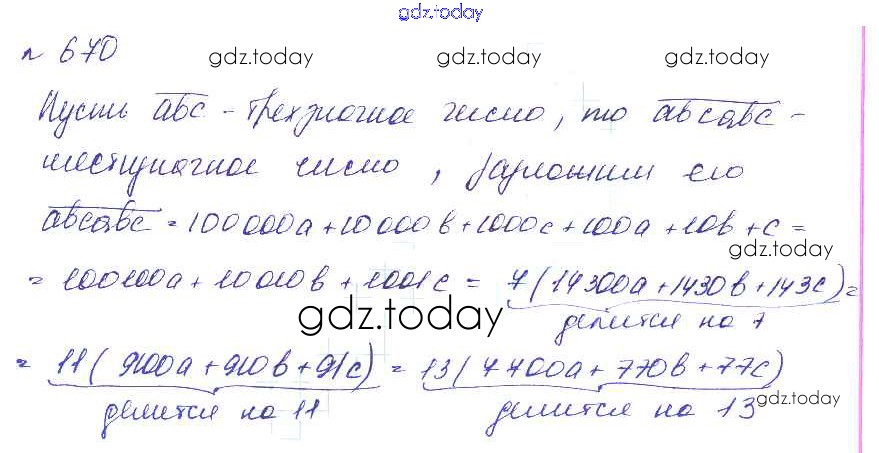 gdz.today
n 670
gdz.today gdz.today gdz.today
Пусть abc - трехзначное число, то abcabc -
шестизначное число, разложим его
abcabc = 100000a + 10000b + 1000c + 100a + 10b + c =
gdz.today
= 100100a + 10010b + 1001c = 7(14300a + 1430b + 143c) =
делится на 7
gdz.today
= 11(9100a + 910b + 91c) = 13(7700a + 770b + 77c)
делится на 11 делится на 13
gdz.today